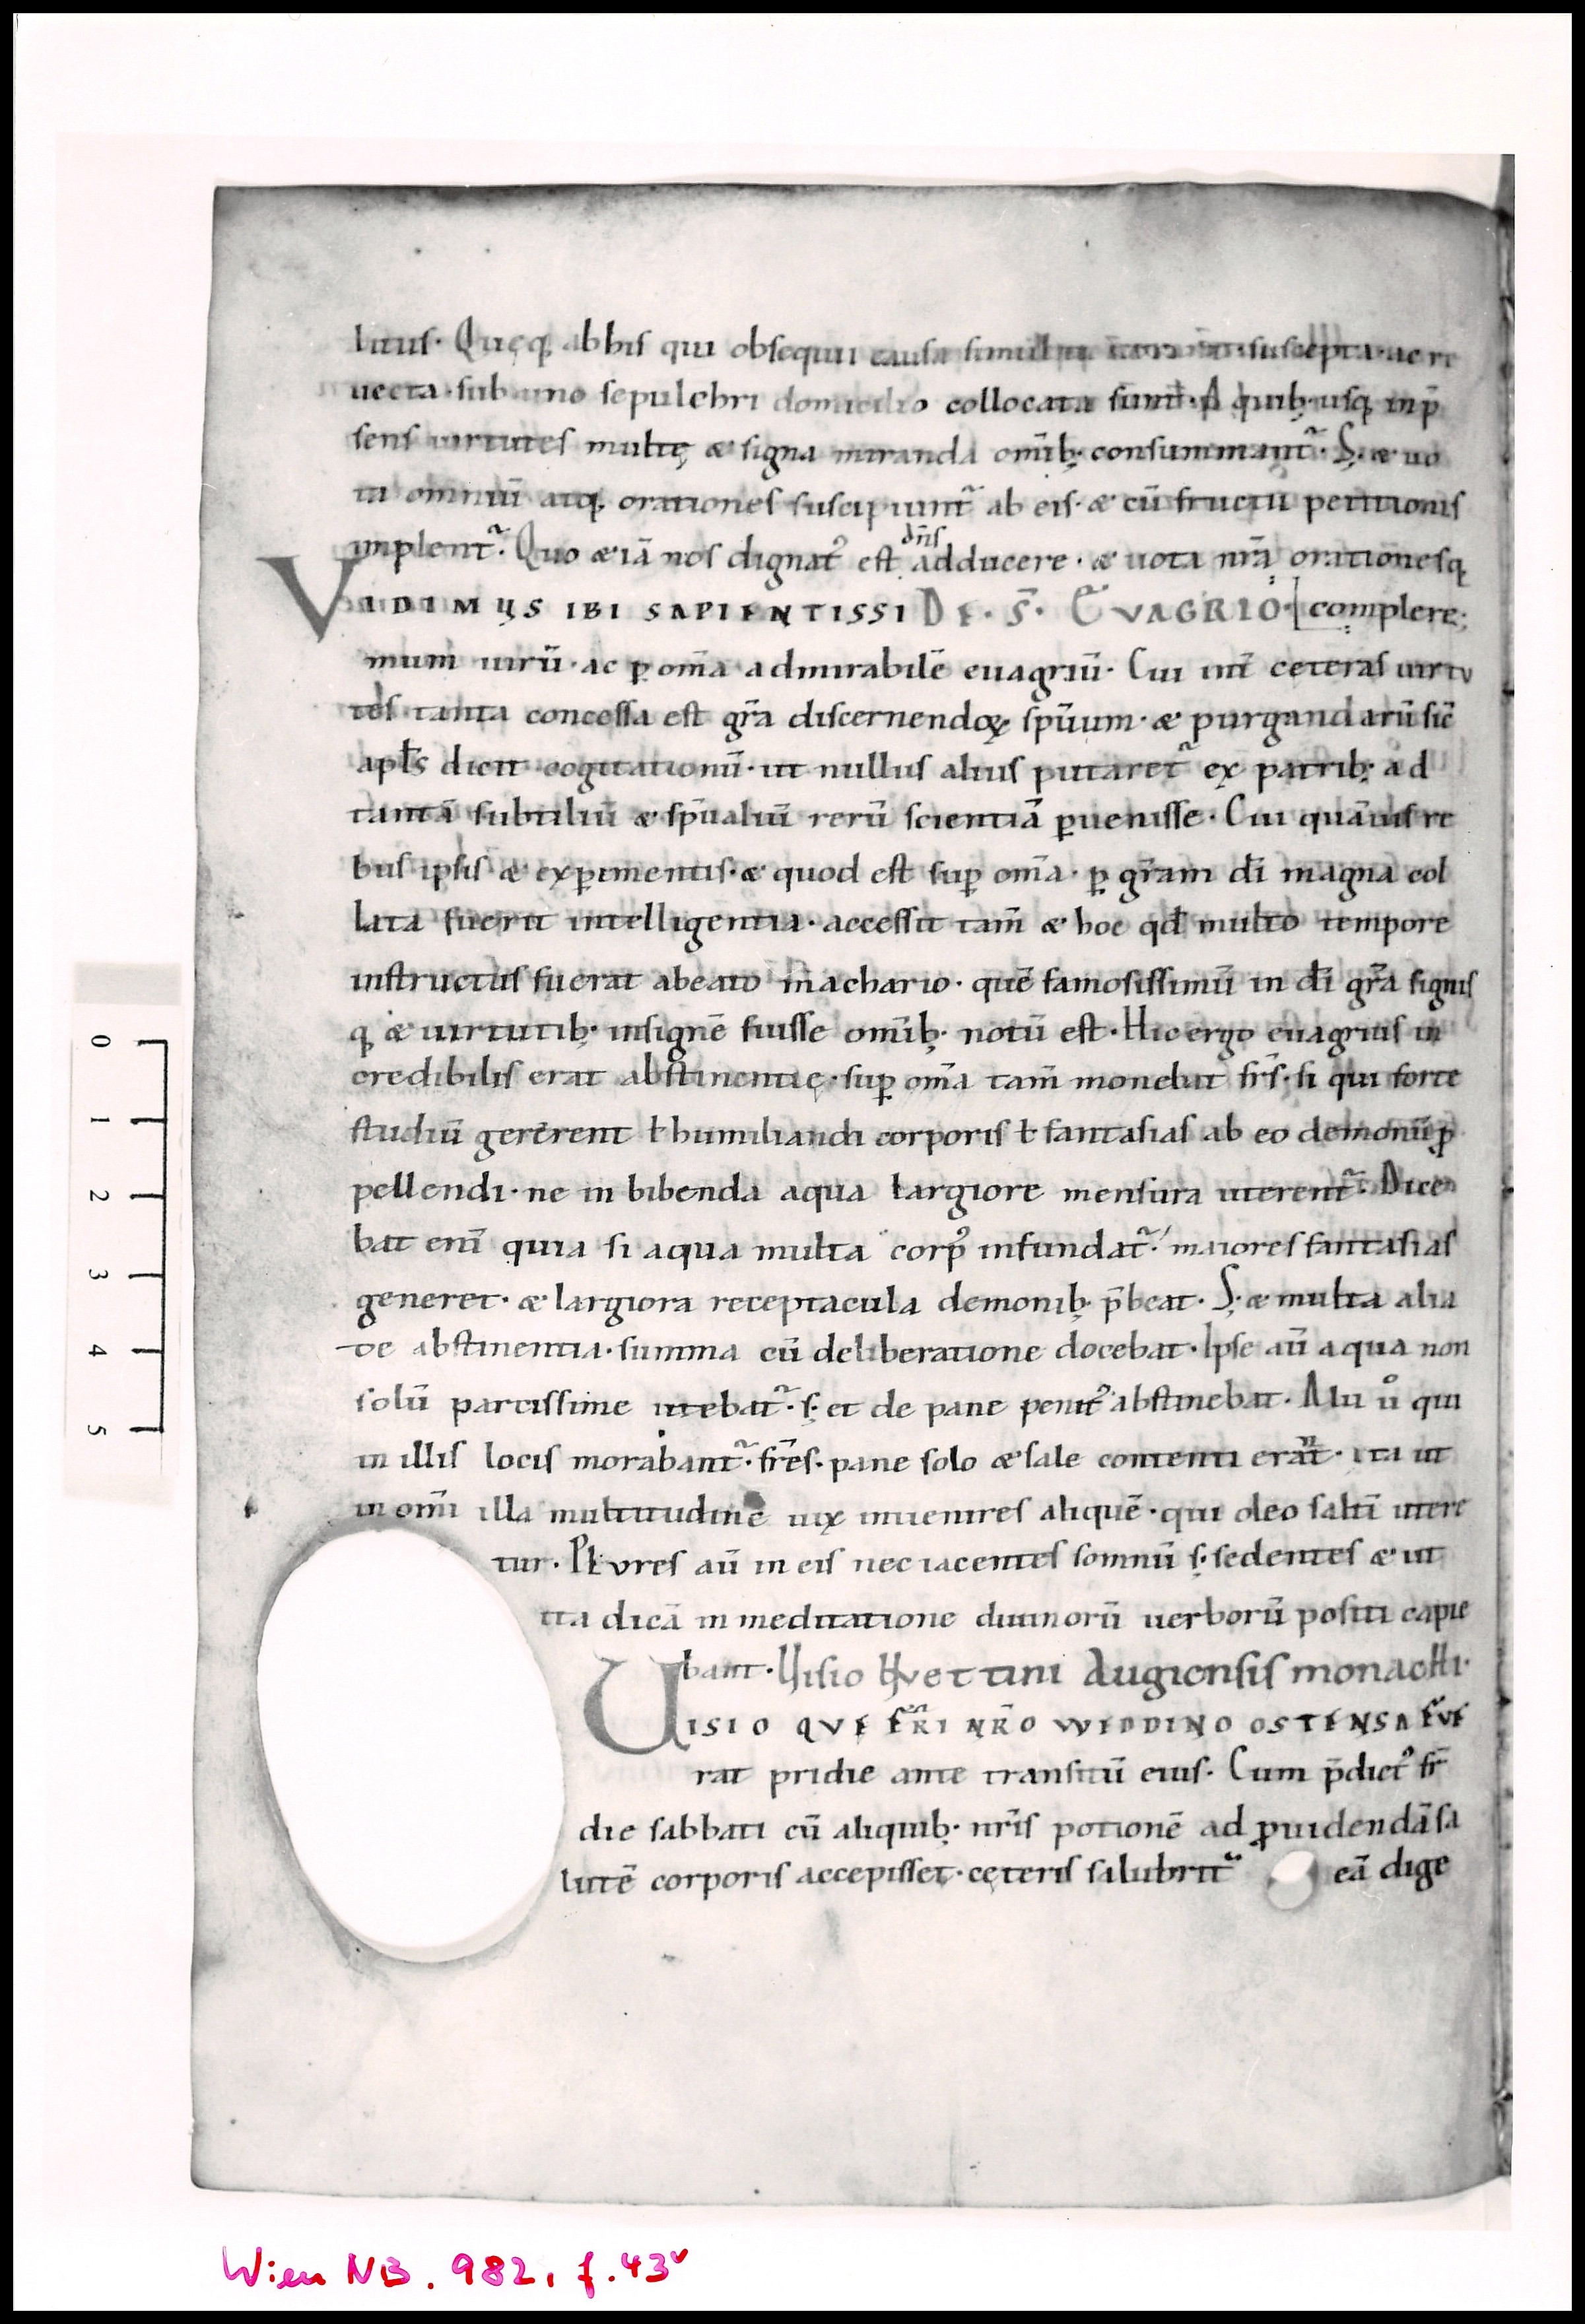 litus· Quęq; ab his qui obsequii causa simul suscepta· ac re
uecta· sub uno sepulchri domicilio collocata sunt· A quib; usq; inp̄
sens uirtutes multę & signa miranda om̄ib; consummant᷑· S; & uo
ta omniū atq; orationes suscipiunt᷑ ab eis· & cū fructu petitionis
implent᷑· Quo & iā nos dignatꝰ est dn̄s adducere· & uota nr̄a orationesq;
VIDIMUS IBI SAPIENTISSI DE· S̄· EVAGRIO· complere;
mum uirū· ac ꝑ om̄a admirabilē euagriū· Cui int̄ ceteras uirtu
tes tanta concessa est gr̄a discernendoꝝ sp̄uum· & purgandarū sic̄
apl̄s dicit cogitationū· ut nullus alius putaret᷑ ex patrib; ad
tantā subtiliū & sp̄ualiū rerū scientiā ꝑuenisse· Cui quāuis re
bus ipsis & exꝑimentis· & quod est suꝑ om̄a· ꝑ gr̄am dī magna col
lata fuerit intelligentia· accessit tam̄ & hoc qd̄ multo tempore
instructus fuerat abeato machario· quē famosissimū in dī gr̄a signis
q; & uirtutib; insignē fuisse om̄ib; notū est· Hic ergo euagrius in
credibilis erat abstinentię· suꝑ om̄a tam̄ monebat fr̄s· si qui forte
studiū gererent ł humiliandi corporis ł fantasias ab eo demonū ꝓ
pellendi· ne in bibenda aqua largiore mensura uterent᷑· Dice
bat enī quia si aqua multa corpꝰ infundat᷑· maiores fantasias
generet· & largiora receptacula demonib; p̄beat· S; & multa alia
de abstinentia· summa cū deliberatione docebat· Ipse aū aqua non
solū parcissime utebat᷑· s; et de pane penitꝰ abstinebat· Alii u̇ qui
in illis locis morabant᷑· fr̄es· pane solo & sale contenti erānt· ita ut
in om̄i illa multitudine uix inuenires aliquē· qui oleo saltī utere
tur· Plures aū in eis nec iacentes somnū s; sedentes & ut
ita dicā in meditatione diuinorū uerborū positi capie
bant· Uisio Huettini Augiensis monachi·
UISIO QUE FR̄I NR̄O WEDDINO OSTENSA FUE
rat pridie ante transitū eius· Cum p̄dictꝰ fr̄
die sabbati cū aliquib; nr̄is potionē ad ꝓuidendā sa
lutē corporis accepisset· cęteris salubrit᷑ eā dige
Wien NB. 982, f. 43ᵛ
0
1
2
3
4
5